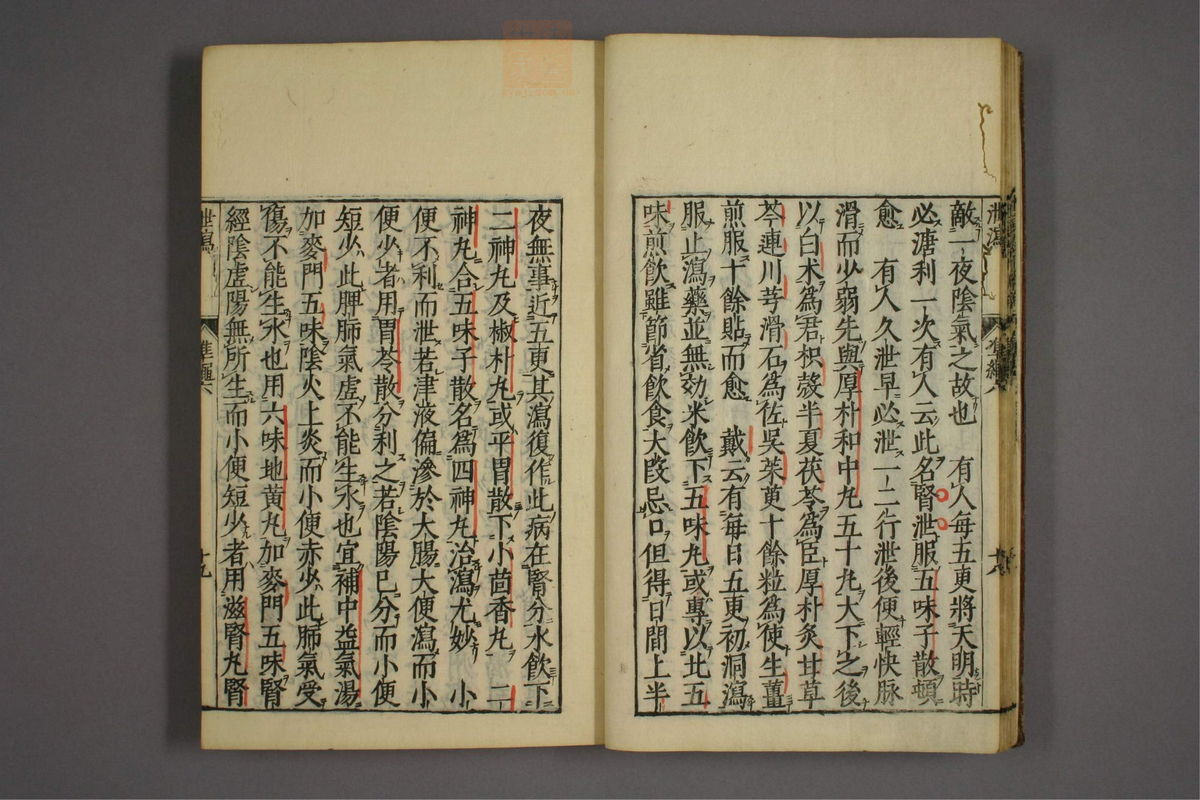 敵一夜陰氣之故也　有人每五更將天明時
必溏利一次有人云此名腎泄服五味子散頓
愈　有人久泄早必泄一二行泄後便輕快脉
滑而少弱先與厚朴和中丸五十丸大下之後
以白术爲君枳殼半夏茯苓爲臣厚朴炙甘草
芩連川芎滑石爲佐吳茱萸十餘粒爲使生薑
煎服十餘貼而愈　戴云有每日五更初洞瀉
服止瀉藥並無効米飲下五味丸或專以北五
味煎飲雖節省飲食大段忌口但得日間上半
夜無事近五更其瀉復作此病在腎分水飲下
二神丸及椒朴丸或平胃散下小茴香丸　二
神丸合五味子散名爲四神丸治瀉尤妙　小
便不利而泄若津液偏滲於大腸大便瀉而小
便少者用胃苓散分利之若陰陽已分而小便
短少此脾肺氣虛不能生水也宜補中益氣湯
加麥門五味陰火上炎而小便赤少此肺氣受
傷不能生水也用六味地黄丸加麥門五味腎
經陰虛陽無所生而小便短少者用滋腎丸腎